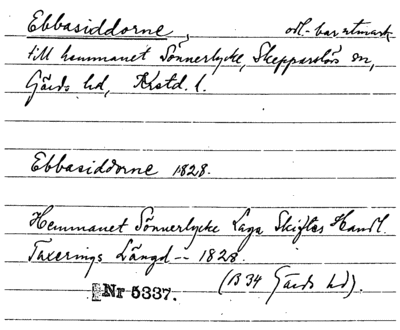 Ebbasiddorne, odl.-bar utmark
till hemmanet Sönnerlycke, Skepparslövs sn,
Gärds hd, Krstd. l.
Ebbasiddorne 1828.
Hemmanet Sönnerlycke Laga Skiftes Handl.
Taxerings Längd -- 1828.
(B 34 Gärds hd).
Nr 5337.